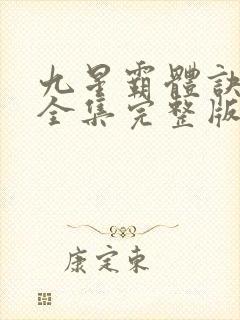 九星霸體訣
全集完整版
康定東